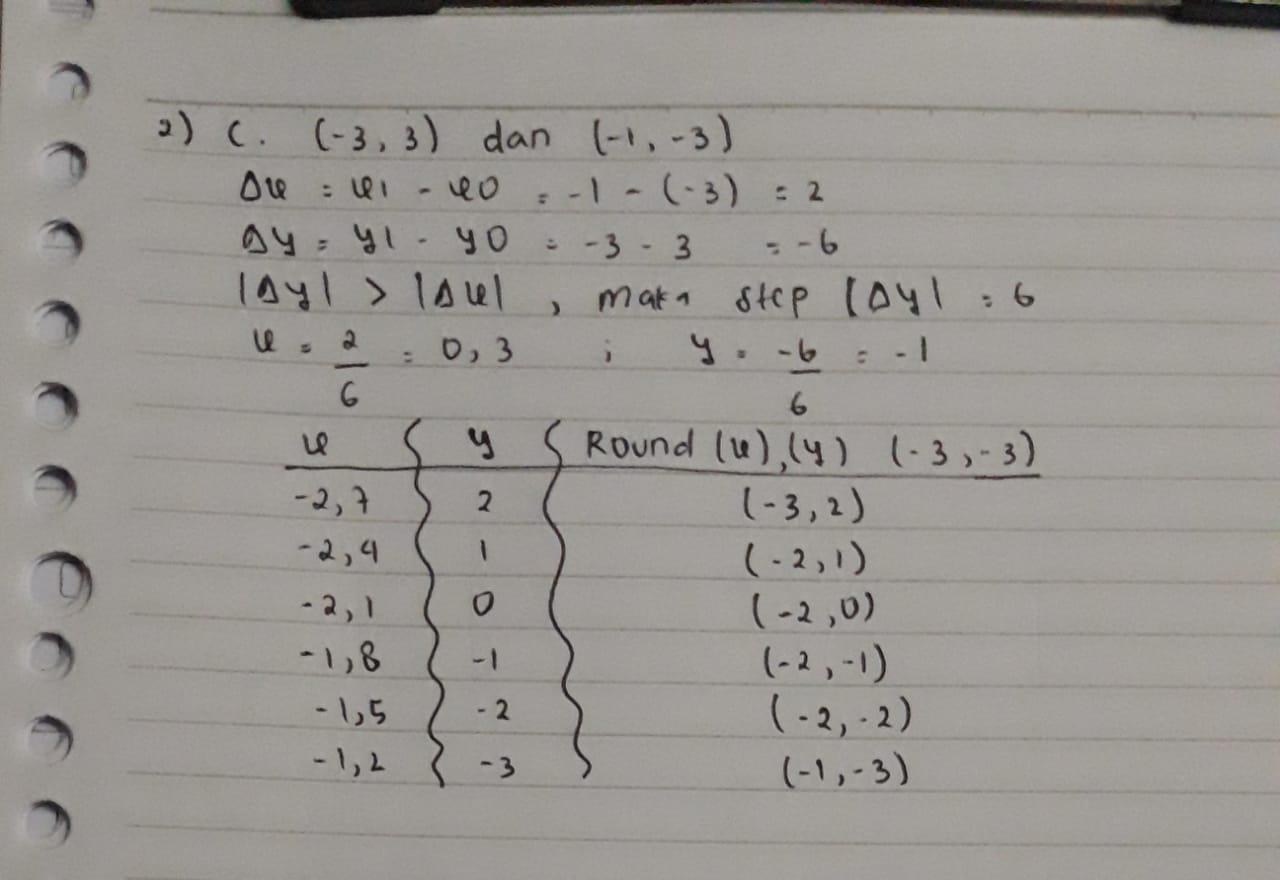 2) C. (-3, 3) dan (-1, -3)
Δx = x1 - x0 = -1 - (-3) = 2
Δy = y1 - y0 = -3 - 3 = -6
|Δy| > |Δx|, maka step |Δy| = 6
x = 2/6 = 0,3 ; y = -6/6 = -1
x { y { Round (x),(y) (-3,-3)
-2,7 2 (-3,2)
-2,4 1 (-2,1)
-2,1 0 (-2,0)
-1,8 -1 (-2,-1)
-1,5 -2 (-2,-2)
-1,2 -3 (-1,-3)